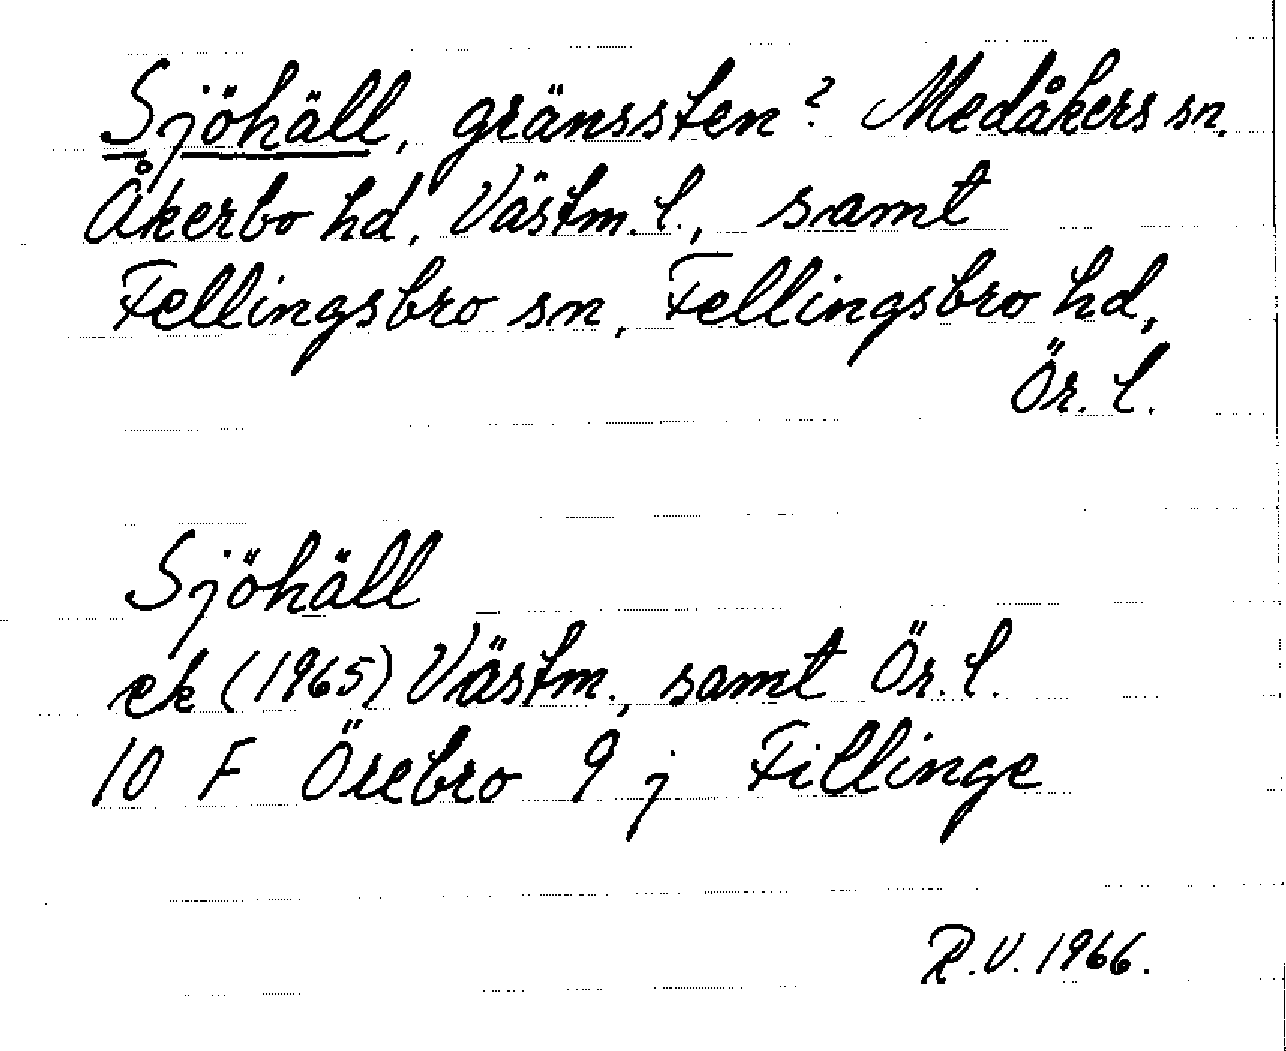 Sjöhäll, gränssten? Medåkers sn.
Åkerbo hd, Västm. l., samt
Fellingsbro sn, Fellingsbro hd,
Ör. l.
Sjöhäll
ek (1965) Västm., samt Ör. l.
10 F Örebro 9 j Fillinge
R.V. 1966.